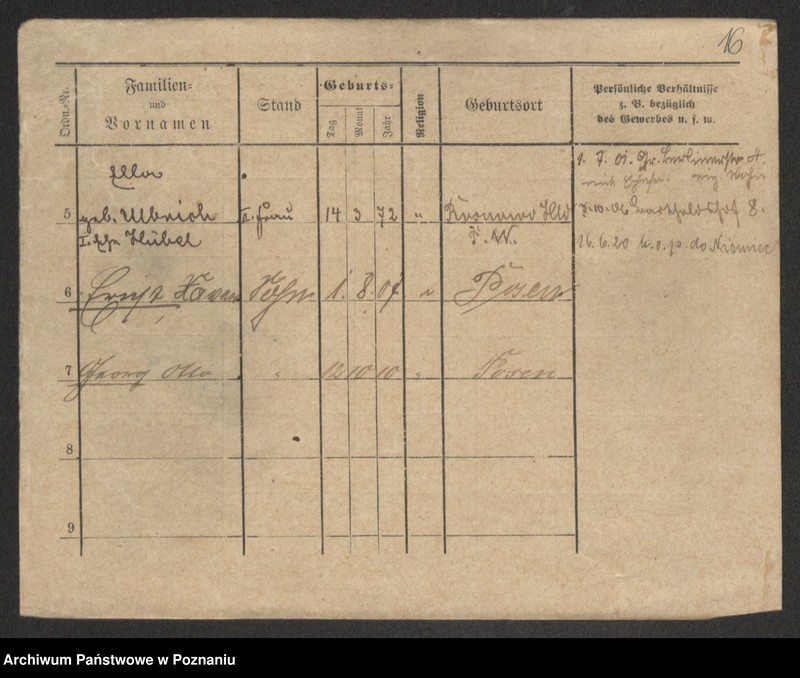 16
Ordn.-Nr.
Familien-
und
Vornamen
Stand
Geburts-
Tag
Monat
Jahr
Religion
Geburtsort
Persönliche Verhältnisse
z. B. bezüglich
des Gewerbes u. s. w.
Ella
5 geb. Ulbrich II. Frau 14 3 72 "
I. Ehe Hübel
16.6.20 do Niemiec
6 Ernst Sohn 1. 8. 07 " Posen
7 Georg Otto " 12 10 10 " Posen
8
9
Archiwum Państwowe w Poznaniu